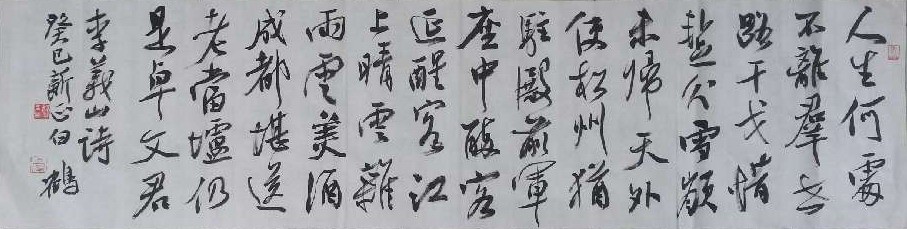 人生何處
不離羣世
路干戈惜
暫分雪嶺
未歸天外
使松州猶
駐殿前軍
座中醉客
延醒客江
上晴雲雜
雨雲美酒
成都堪送
老當壚仍
是卓文君
李義山詩
癸巳新正白鶴